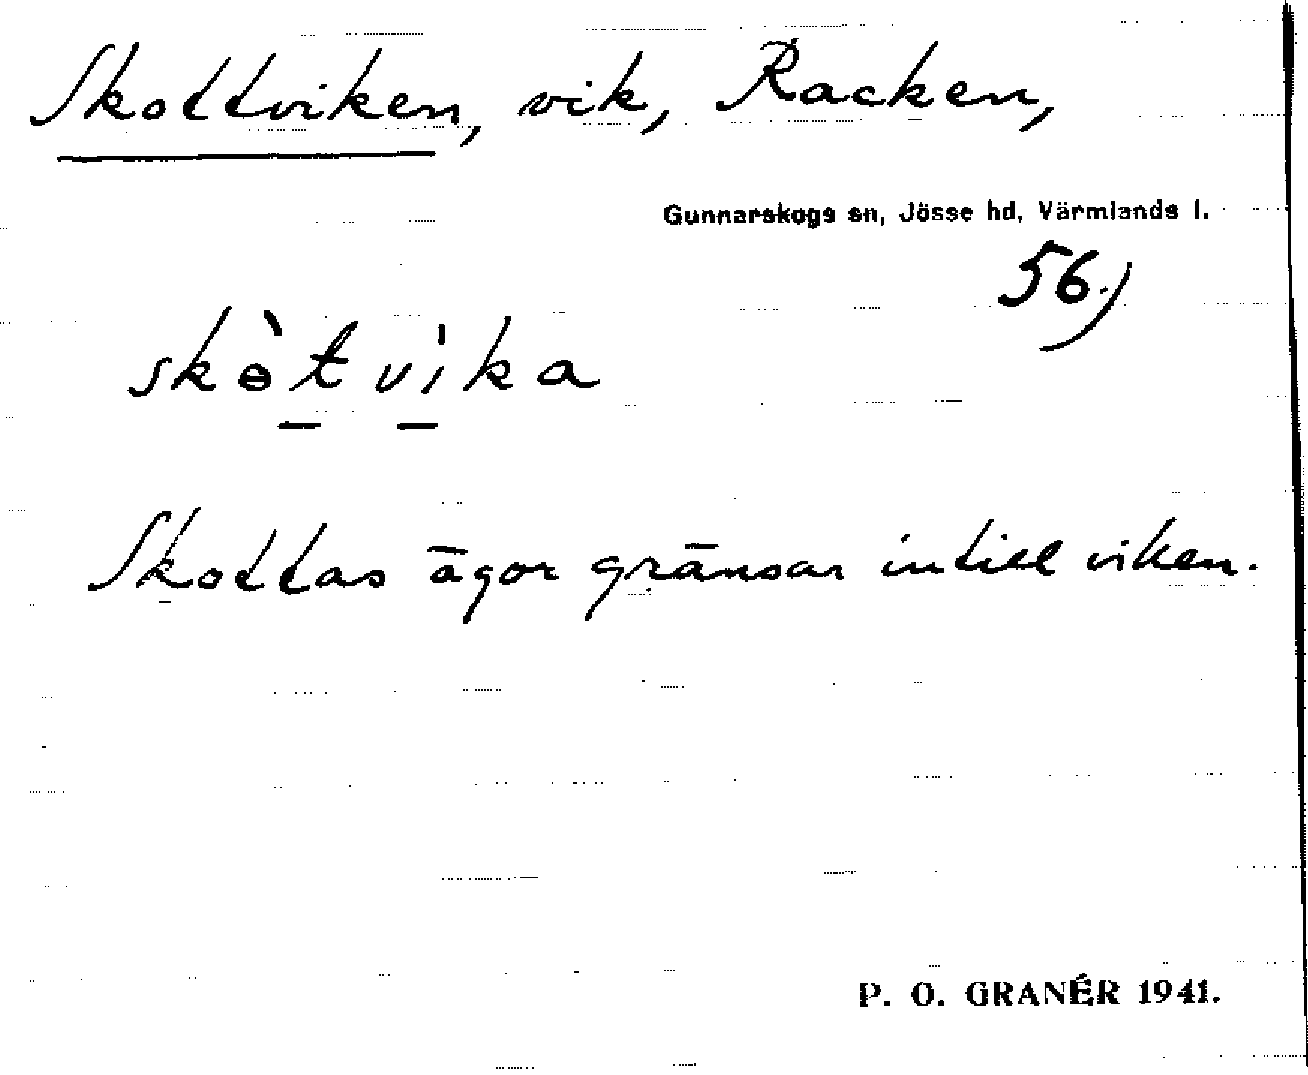 Skottviken, vik, Racken,
Gunnarskogs sn, Jösse hd, Värmlands l.
56.)
skɵ̀t̠vi̠̍ka
Skottas ägor gränsar intill viken.
P. O. GRANÉR 1941.